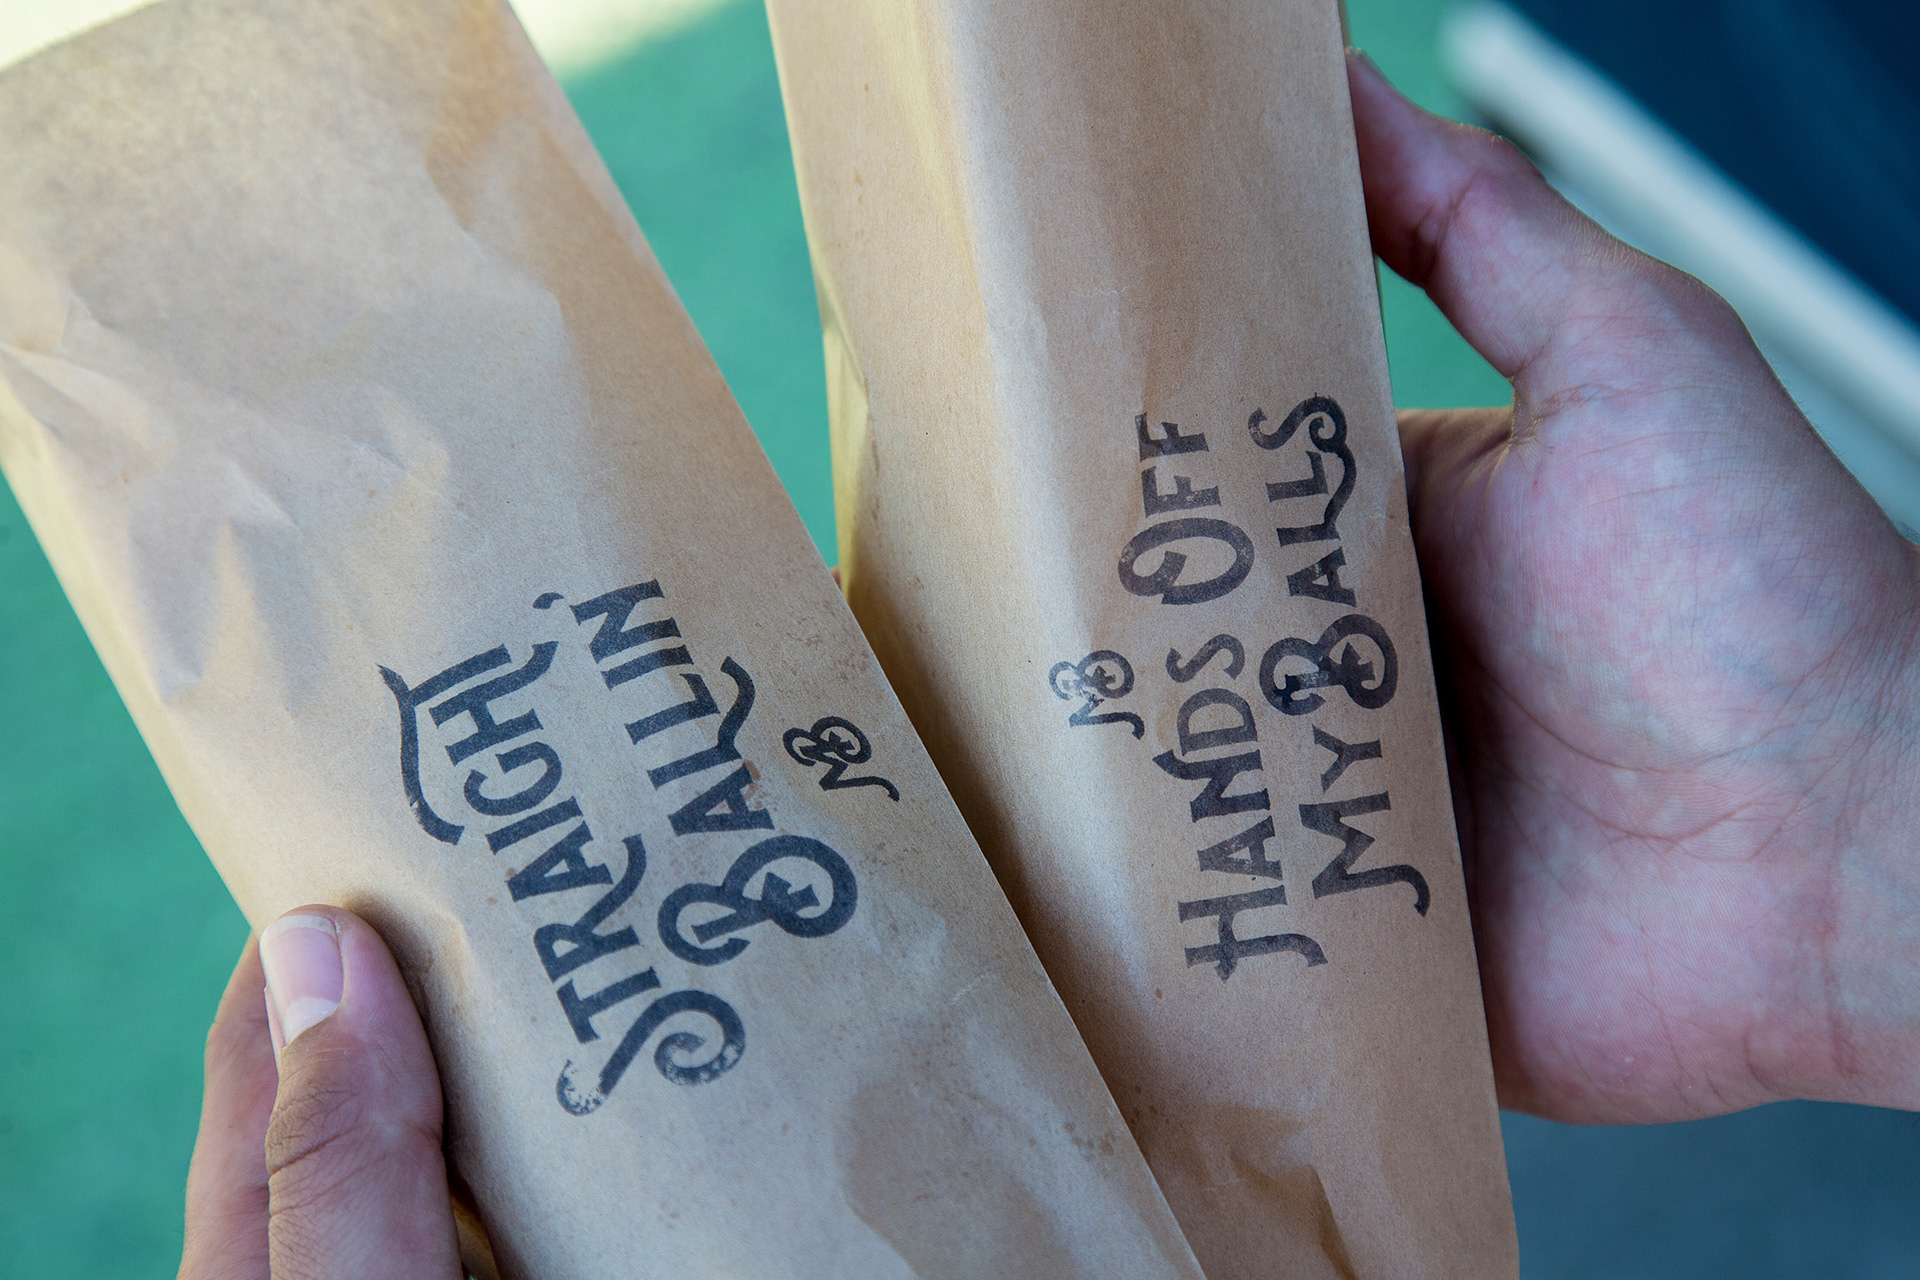 STRAIGHT
BALLIN'
MB
MB
HANDS OFF
MY BALLS